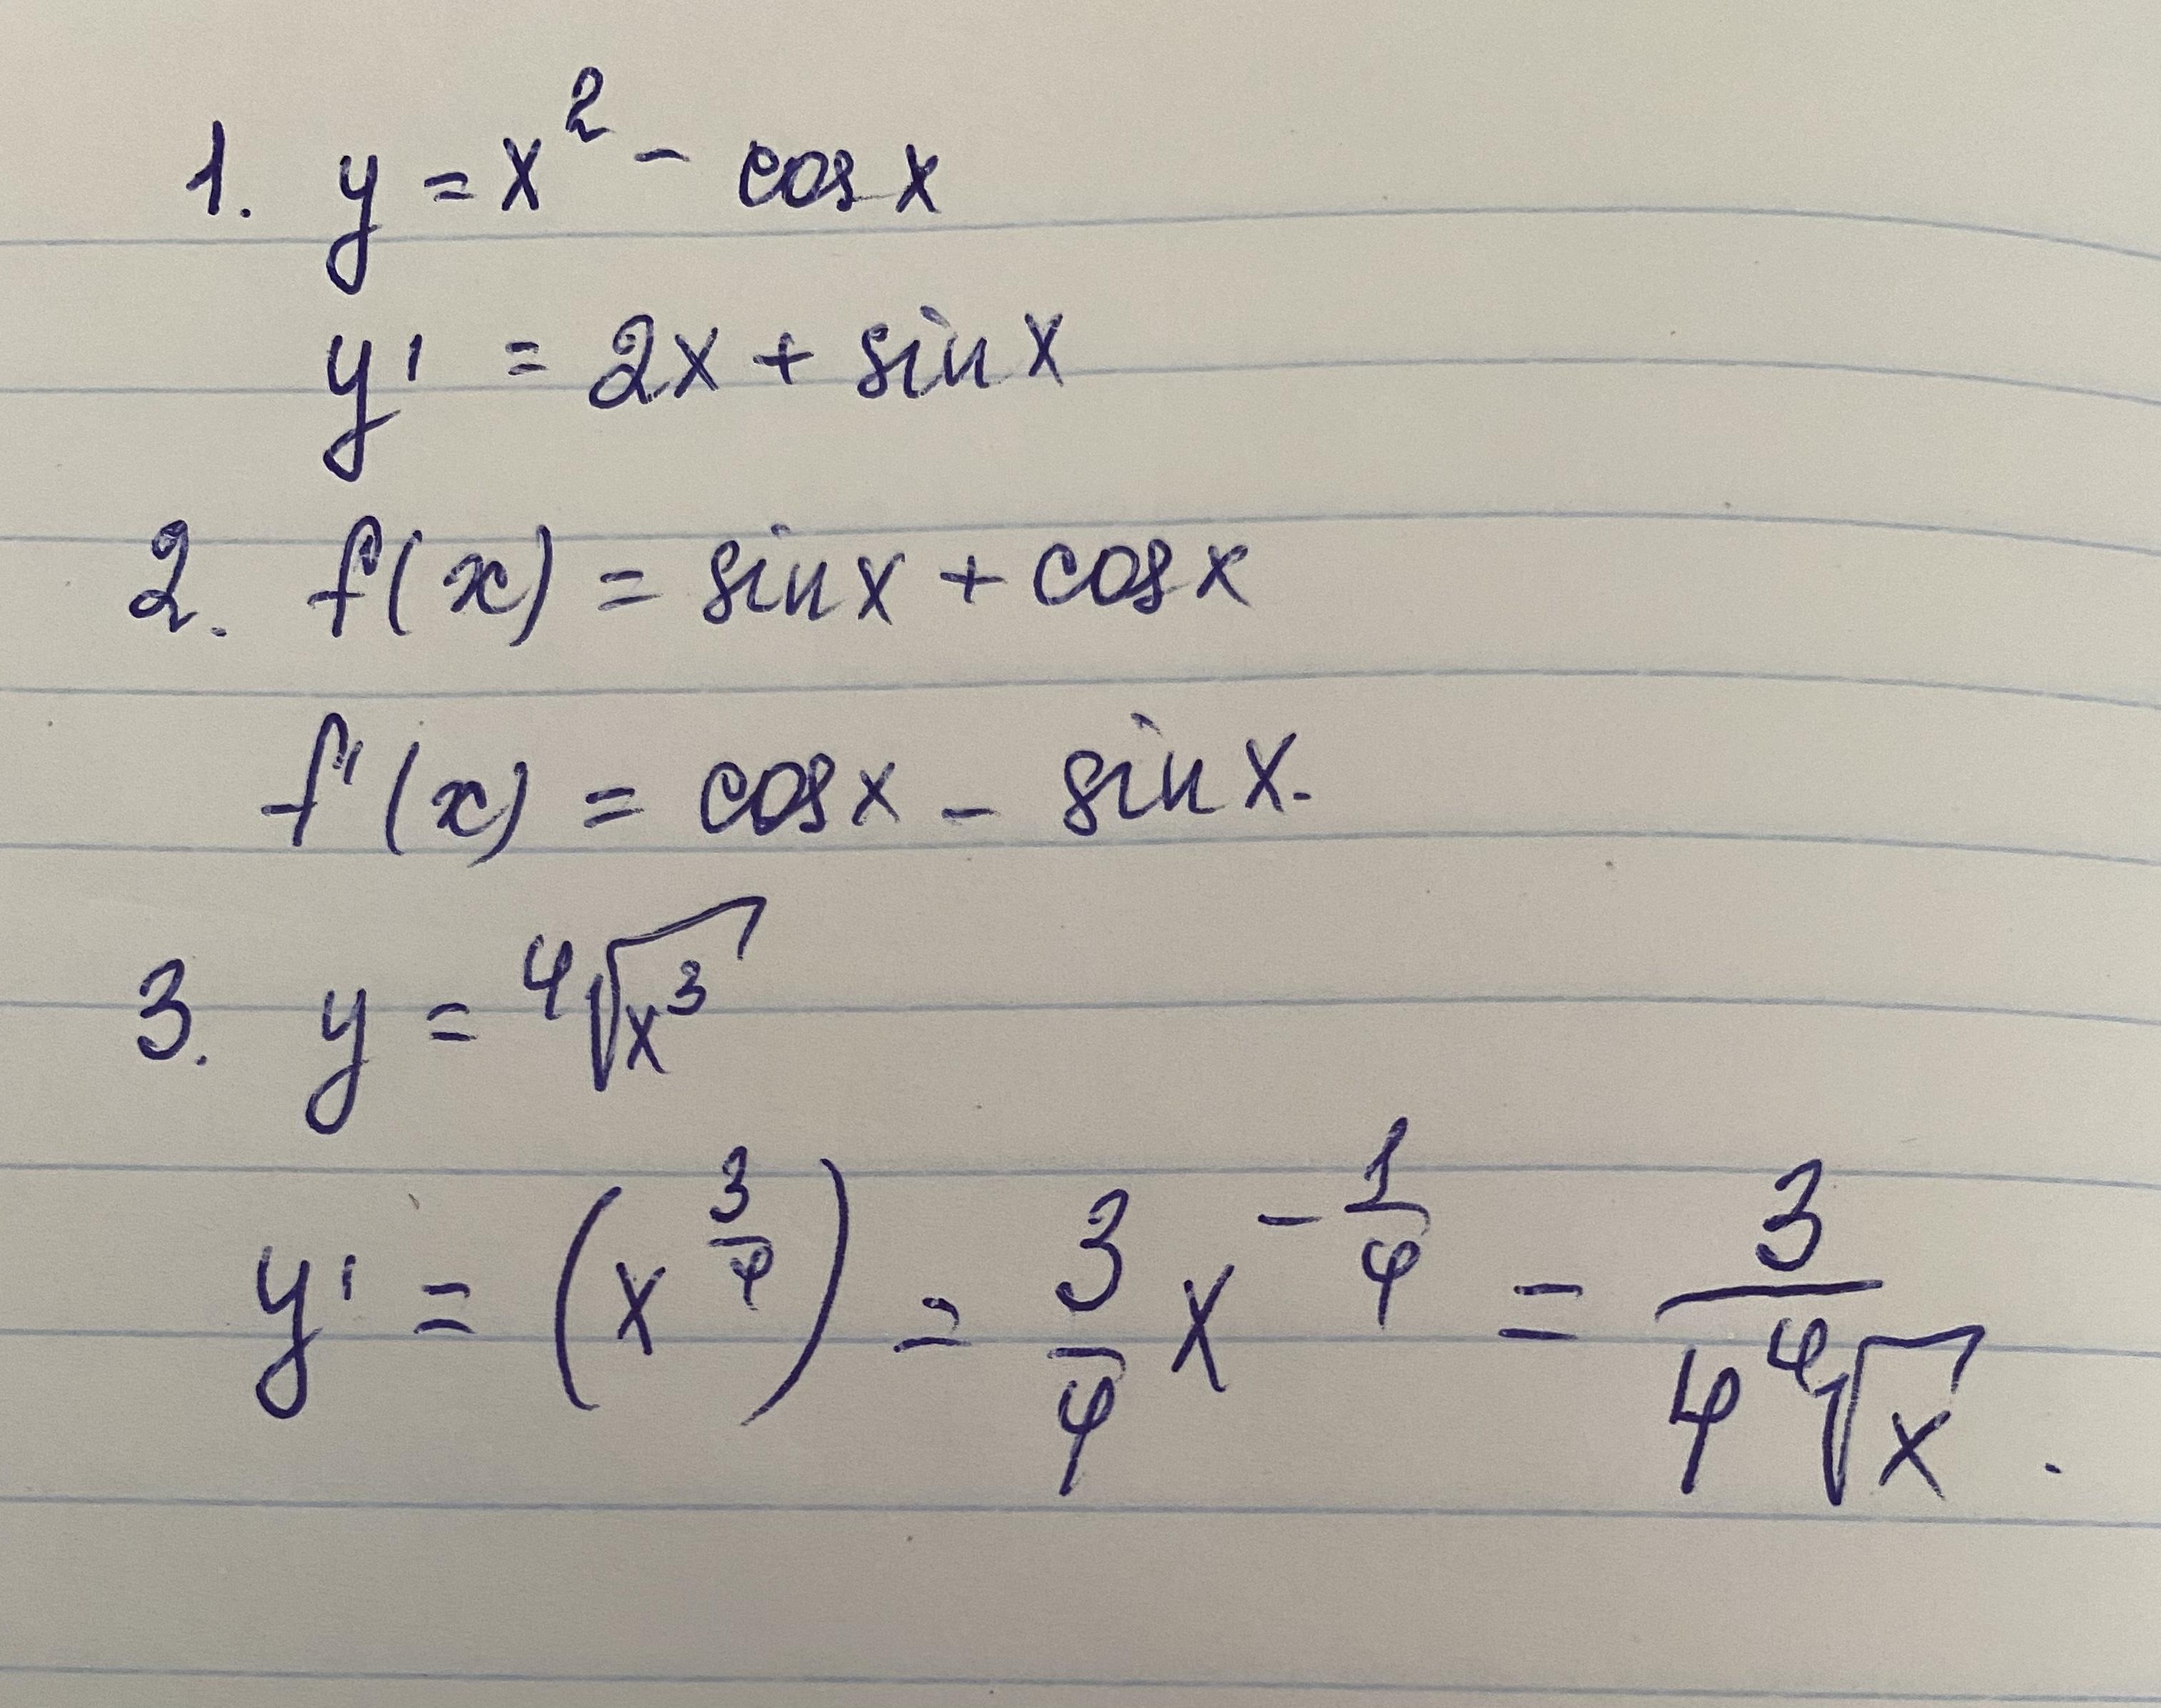 1. y = x² - cos x
y' = 2x + sin x
2. f(x) = sin x + cos x
f'(x) = cos x - sin x.
3. y = ⁴√x³
y' = (x^(3/4)) = 3/4 x^(-1/4) = 3/(4 ⁴√x).